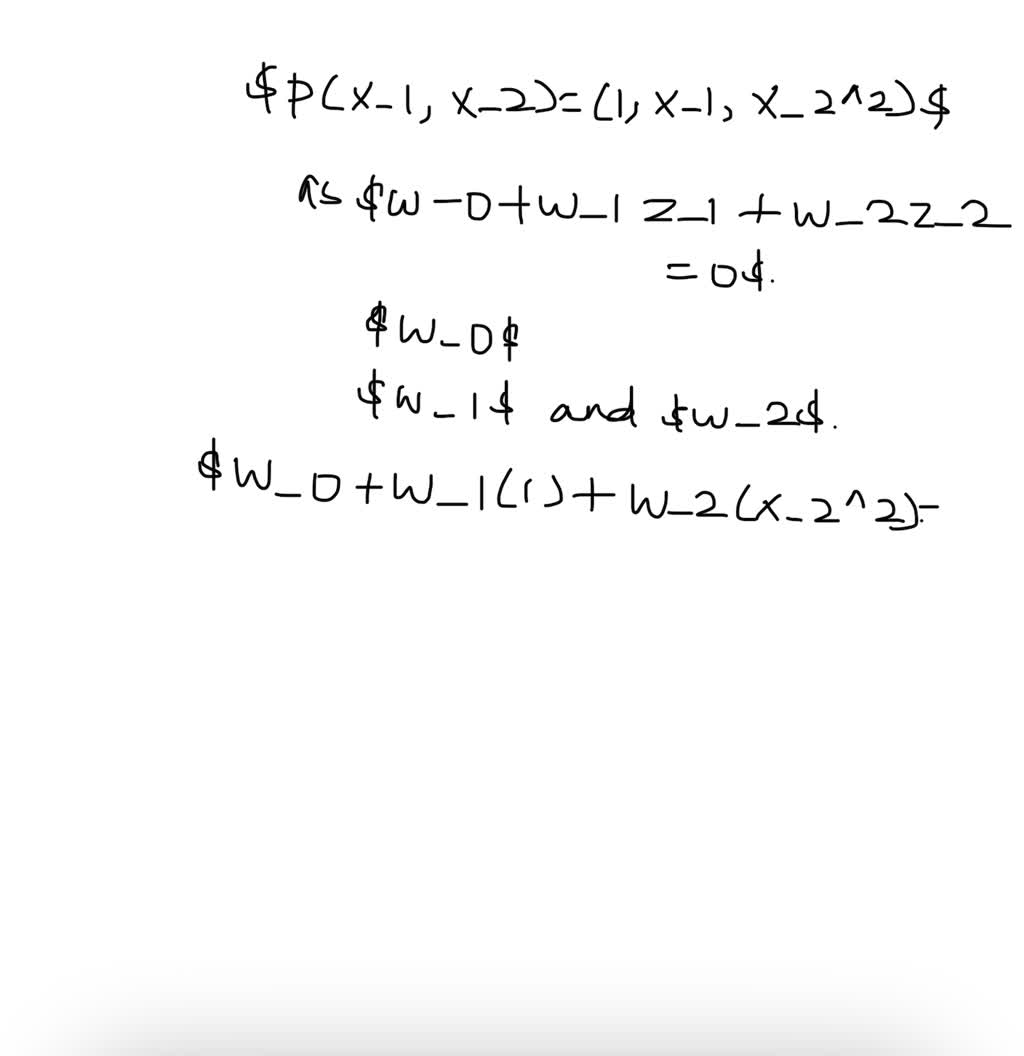 $p(x-1, x-2)=(1, x-1, x_2^2)$
as $w-0+w_1 z_1 + w_2z_2
=0$.
$w_0$
$w_1$ and $w_2$.
$w_0+w_1(1)+w_2(x_2^2)=